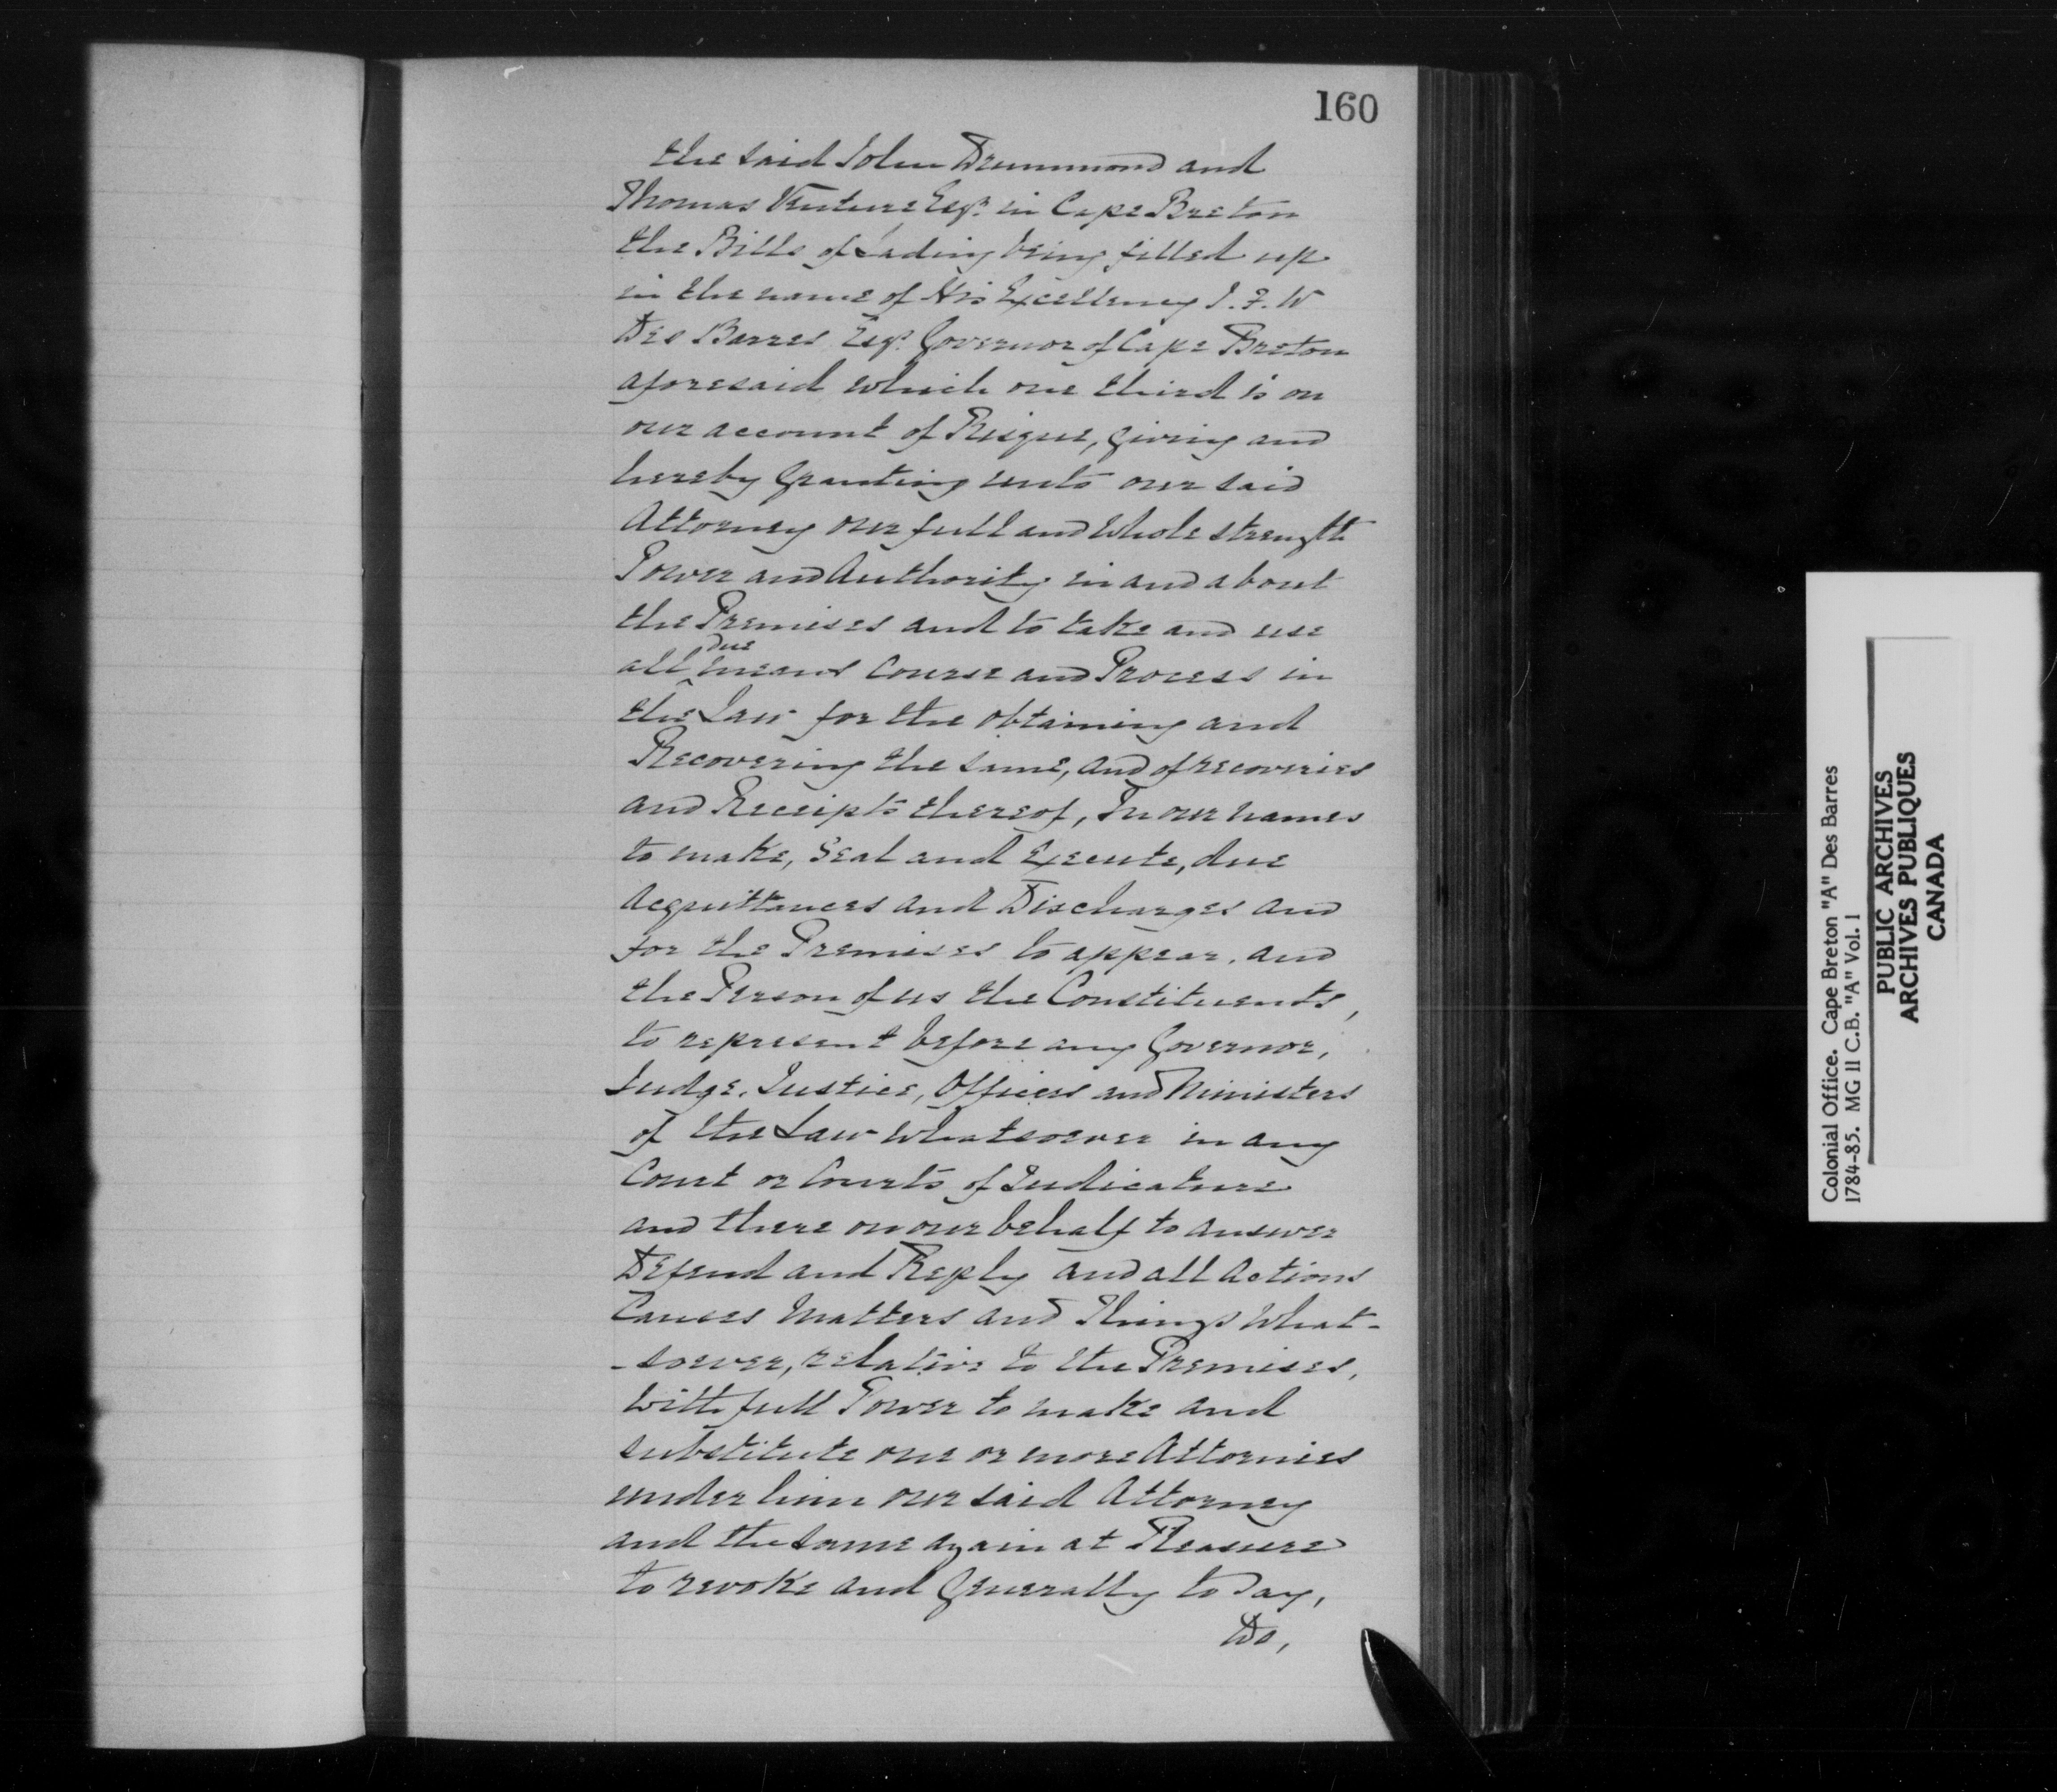 160
the said John Drummond and
Thomas Venture Esqr. in Cape Breton
the Bills of Lading being filled up
in the name of His Excellency J. F. W
Des Barres Esqr. Governor of Cape Breton
aforesaid which one third is on
our account of Risque, Giving and
hereby Granting unto our said
Attorney our full and Whole strength
Power and Authority in and about
the Premises and to take and use
all due means Course and Process in
the Law for the obtaining and
Recovering the same, and of recoveries
and Receipts thereof, In our names
to make, Seal and Execute, due
Acquittances and Discharges and
for the Premises to appear, and
the Person of us the Constituents,
to represent before any Governor,
Judge, Justice, Officers and Ministers
of the Law Whatsoever in any
Court or Courts of Judicature
and there on our behalf to answer
Defend and Reply and all Actions
Causes Matters and Things What-
-soever, relative to the Premises,
With full Power to make and
substitute one or more Attornies
under him our said Attorney
and the same again at Pleasure
to revoke and Generally to Say,
Do,
Colonial Office. Cape Breton "A" Des Barres
1784-85. MG 11 C.B. "A" Vol. 1
PUBLIC ARCHIVES
ARCHIVES PUBLIQUES
CANADA